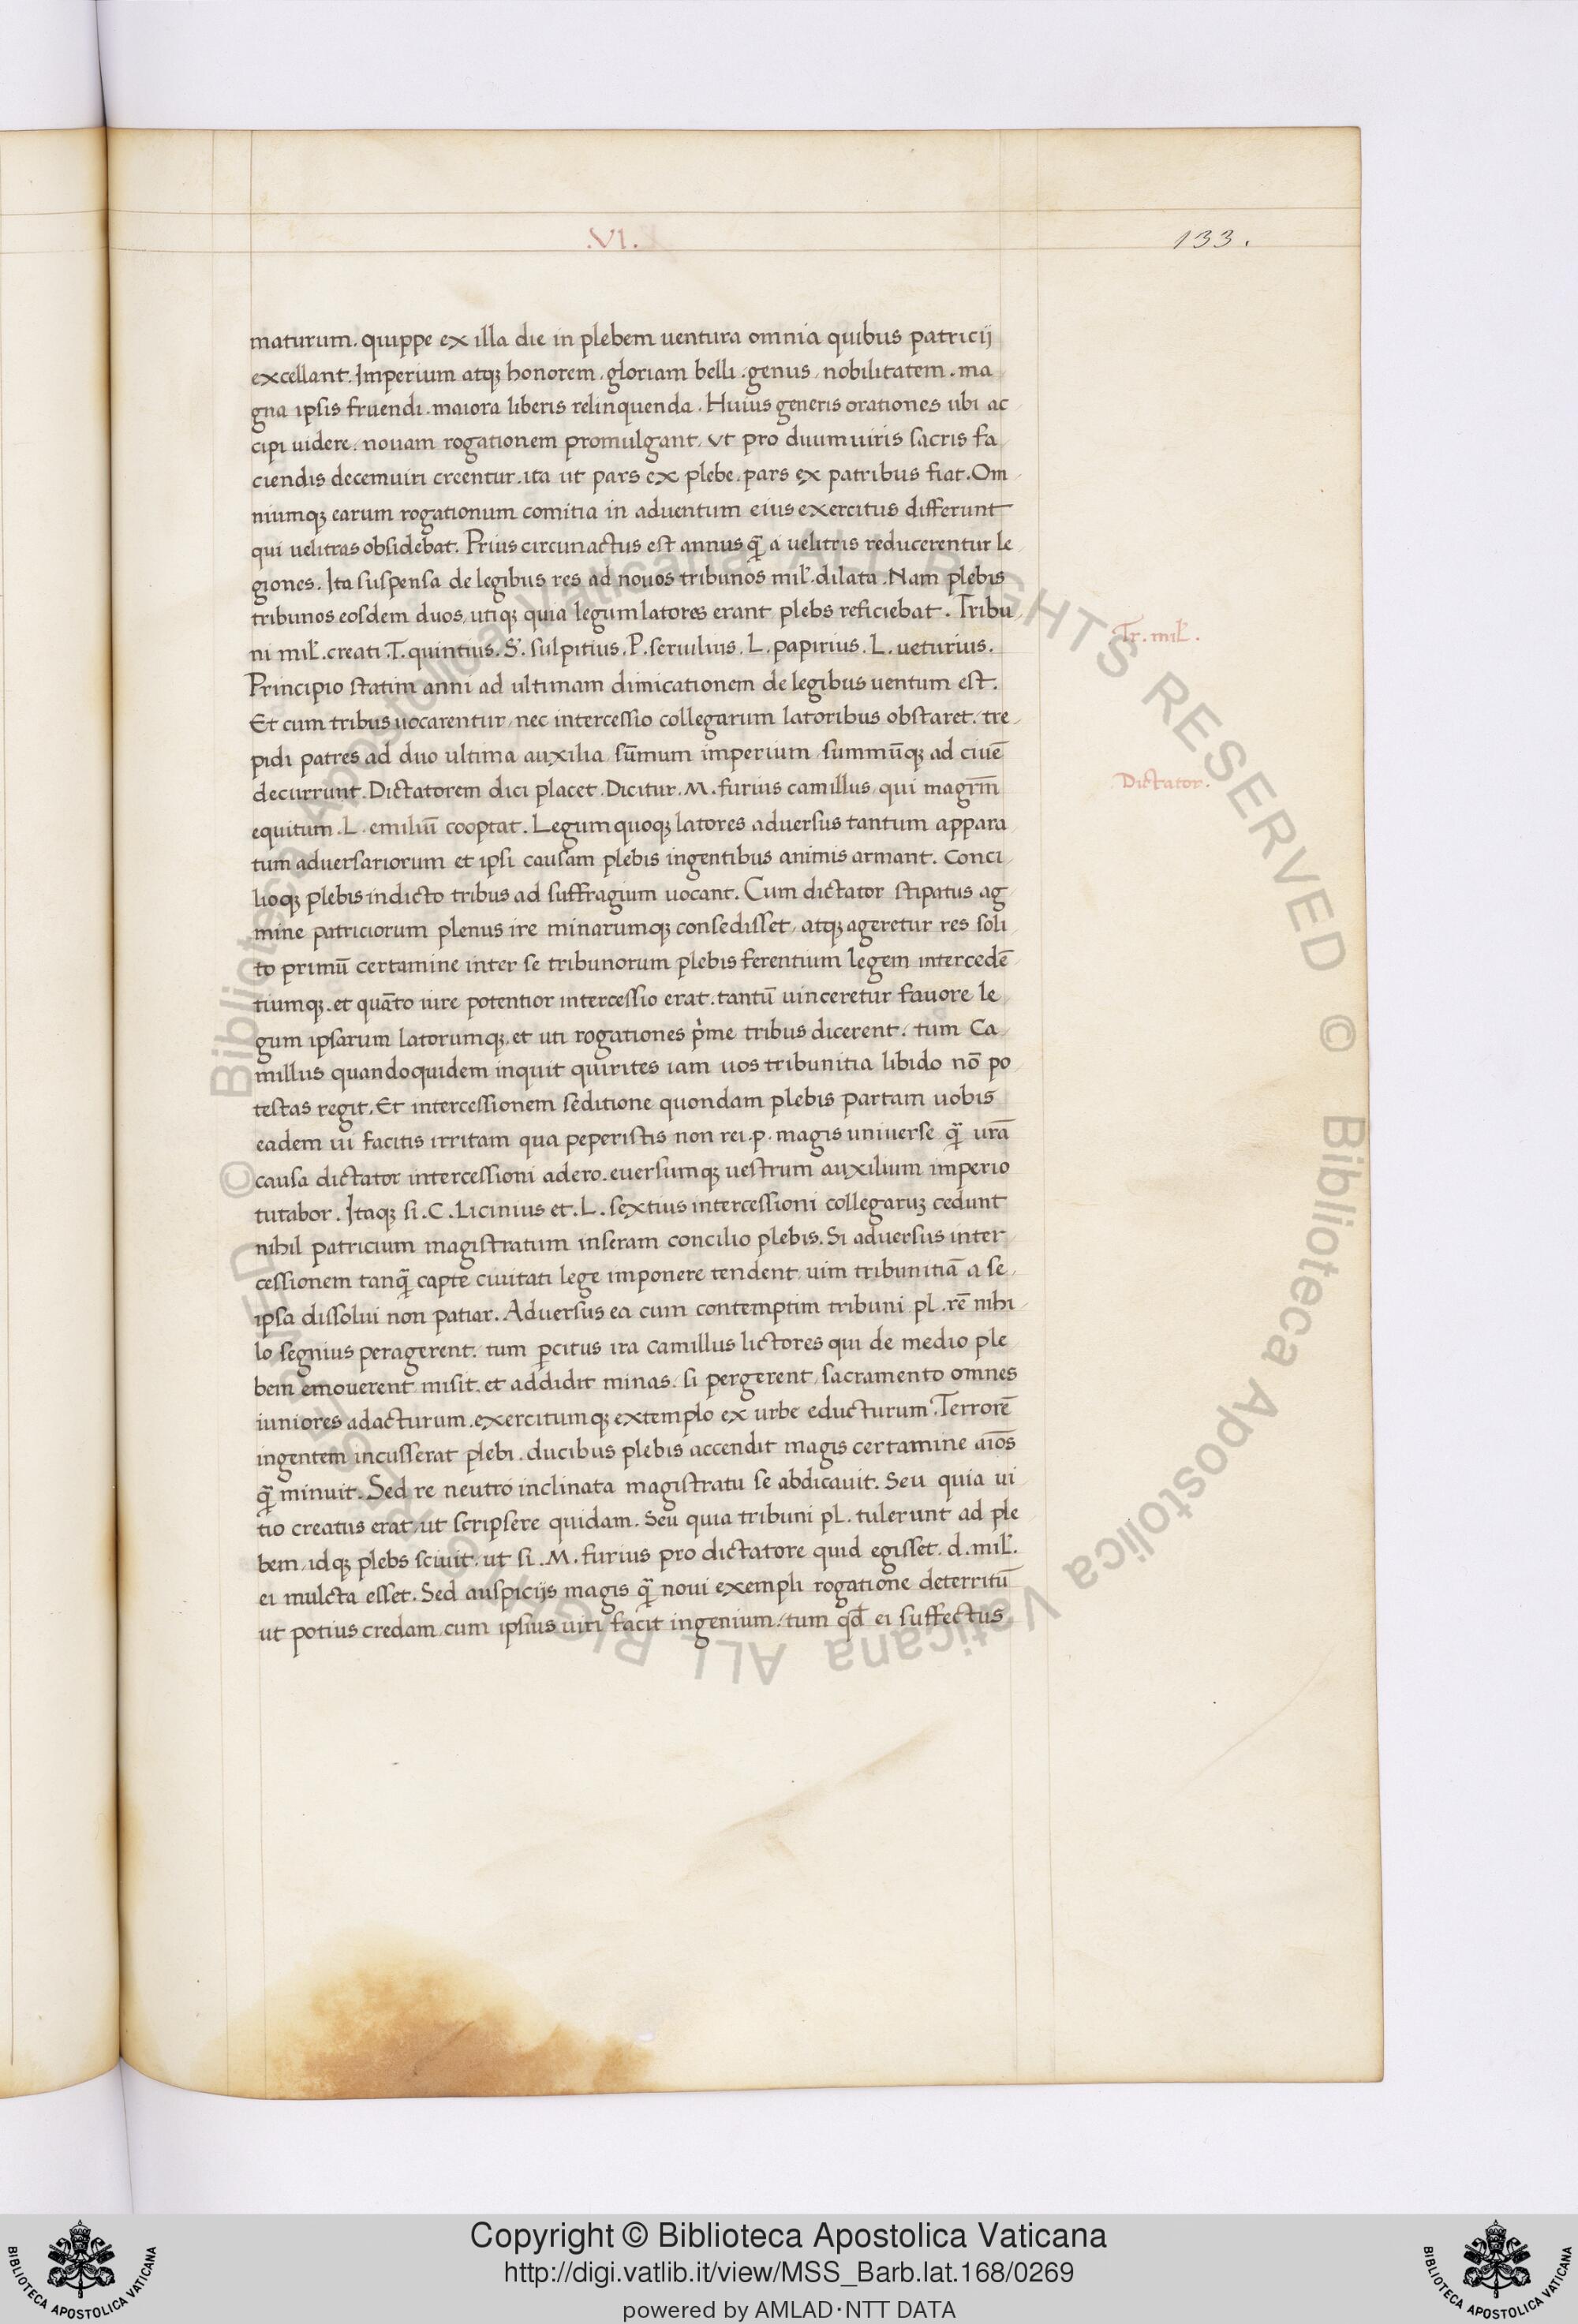 .VI.
133.
maturum. quippe ex illa die in plebem uentura omnia quibus patricij
excellant. Imperium atqȝ honorem. gloriam belli. genus. nobilitatem. ma
gna ipsis fruendi. maiora liberis relinquenda. Huius generis orationes ubi ac
cipi uidere. nouam rogationem promulgant, ut pro duumuiris sacris fa
ciendis decemuiri creentur. ita ut pars ex plebe. pars ex patribus fiat. Om
niumqȝ earum rogationum comitia in aduentum eius exercitus differunt
qui uelitras obsidebat. Prius circunactus est annus q̃ a uelitris reducerentur le
giones. Ita suspensa de legibus res ad nouos tribunos mil̃. dilata. Nam plebis
tribunos eosdem duos, utiqȝ quia legumlatores erant plebs reficiebat. Tribu
ni mil̃. creati. T. quintius. S̃. sulpitius. P. seruilius. L. papirius. L. ueturius.
Tr. mil̃.
Principio statim anni ad ultimam dimicationem de legibus uentum est.
Et cum tribus uocarentur, nec intercessio collegarum latoribus obstaret. tre
pidi patres ad duo ultima auxilia sūmum imperium summūqȝ ad ciuē
decurrunt. Dictatorem dici placet. Dicitur. M. furius camillus, qui magrm̄
Dictator.
equitum. L. emiliū cooptat. Legumquoqȝ latores aduersus tantum appara
tum aduersariorum et ipsi causam plebis ingentibus animis armant. Conci
lioqȝ plebis indicto tribus ad suffragium uocant. Cum dictator stipatus ag
mine patriciorum plenus ire minarumqȝ consedisset, atqȝ ageretur res soli
to primū certamine inter se tribunorum plebis ferentium legem intercedē
tiumqȝ. et quāto iure potentior intercessio erat. tantū uinceretur fauore le
gum ipsarum latorumqȝ. et uti rogationes p̍me tribus dicerent. tum Ca
millus quandoquidem inquit quirites iam uos tribunitia libido nō po
testas regit. Et intercessionem seditione quondam plebis partam uobis
eadem ui facitis irritam qua peperistis non rei. p. magis uniuerse q̃ urā
causa dictator intercessioni adero. euersumqȝ uestrum auxilium imperio
tutabor. Itaqȝ si. C. Licinius et. L. sextius intercessioni collegaruȝ cedunt
nihil patricium magistratum inseram concilio plebis. Si aduersus inter
cessionem tanq̃ capte ciuitati lege imponere tendent. uim tribunitiā a se
ipsa dissolui non patiar. Aduersus ea cum contemptim tribuni pl. rē nihi
lo segnius peragerent. tum ꝑcitus ira camillus lictores qui de medio ple
bem emouerent misit. et addidit minas. si pergerent, sacramento omnes
iuniores adacturum. exercitumqȝ extemplo ex urbe educturum. Terrorē
ingentem incusserat plebi. ducibus plebis accendit magis certamine aīos
q̃ minuit. Sed re neutro inclinata magistratu se abdicauit. Seu quia ui
tio creatus erat, ut scripsere quidam. Seu quia tribuni pl. tulerunt ad ple
bem, idqȝ plebs sciuit. ut si. M. furius pro dictatore quid egisset. d. mil̃.
ei mulcta esset. Sed auspicijs magis q̃ noui exempli rogatione deterritū
ut potius credam, cum ipsius uiri facit ingenium. tum qđ ei suffectus
© Biblioteca Apostolica Vaticana ALL RIGHTS RESERVED
© Biblioteca Apostolica Vaticana ALL RIGHTS RESERVED
BIBLIOTECA APOSTOLICA VATICANA
Copyright © Biblioteca Apostolica Vaticana
http://digi.vatlib.it/view/MSS_Barb.lat.168/0269
powered by AMLAD·NTT DATA
BIBLIOTECA APOSTOLICA VATICANA